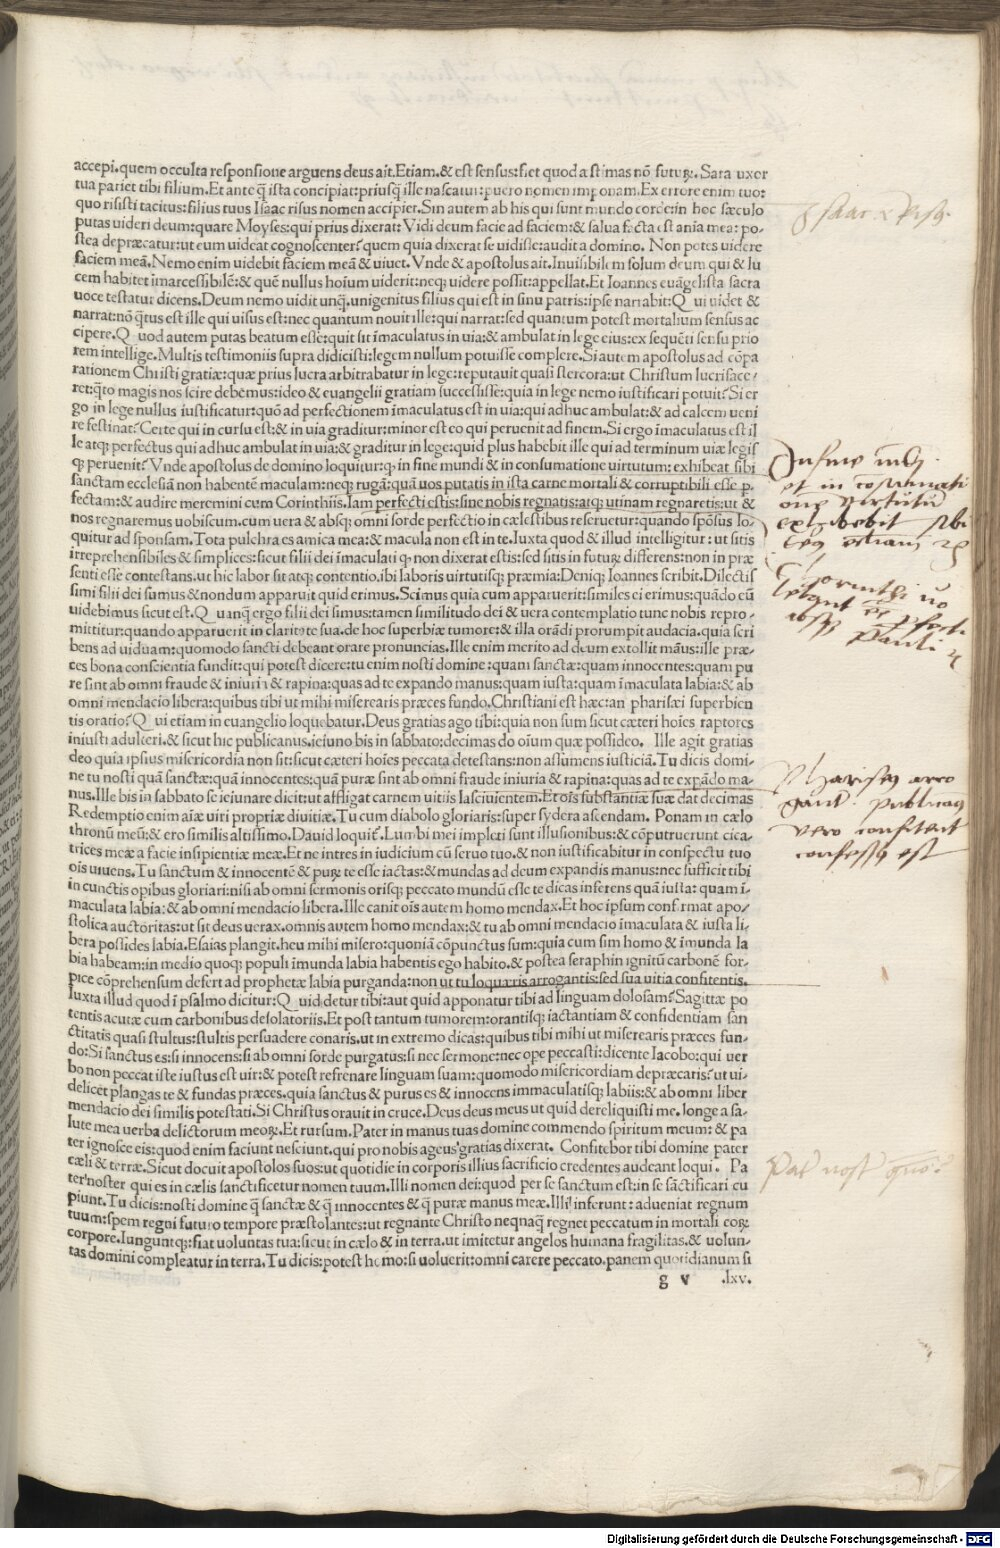 accepi.quem occulta responsione arguens deus ait.Etiam.& est sensus:fiet quod æstimas nõ futurꝝ.Sara uxor
tua pariet tibi filium.Et ante q̃ ista concipiat:priusq̃ ille nascatur:puero nomen imponam.Ex errore enim tuo:
quo risisti tacitus:filius tuus Isaac risus nomen accipiet.Sin autem ab his qui sunt mundo corde:in hoc sæculo
putas uideri deum:quare Moyses:qui prius dixerat:Vidi deum facie ad faciem:& salua facta est aĩa mea:po-
stea depræcatur:ut eum uideat cognoscenter?quem quia dixerat se uidisse:audit a domino. Non potes uidere
faciem meã.Nemo enim uidebit faciem meã & uiuet.Vnde & apostolus ait.Inuisibilem solum deum qui & lu
cem habitet ĩmarcessibilẽ:& quẽ nullus hoĩum uiderit:neq; uidere possit:appellat.Et Ioannes euãgelista sacra
uoce testatur dicens.Deum nemo uidit unq̃.unigenitus filius qui est in sinu patris:ipse narrabit:Q ui uidet &
narrat:nõ q̃tus est ille qui uisus est:nec quantum nouit ille:qui narrat:sed quantum potest mortalium sensus ac
cipere.Q uod autem putas beatum esse:quit sit ĩmaculatus in uia:& ambulat in lege eius:ex sequẽti sensu prio
rem intellige.Multis testimoniis supra didicisti:legem nullum potuisse complere.Si autem apostolus ad cõpa
rationem Christi gratiæ:quæ prius lucra arbitrabatur in lege:reputauit quasi stercora:ut Christum lucriface/
ret:q̃to magis nos scire debemus:ideo & euangelii gratiam successisse:quia in lege nemo iustificari potuit?Si er
go in lege nullus iustificatur:quõ ad perfectionem ĩmaculatus est in uia:qui adhuc ambulat:& ad calcem ueni
re festinat?Certe qui in cursu est:& in uia graditur:minor est eo qui peruenit ad finem.Si ergo ĩmaculatus est il
le atq; perfectus qui adhuc ambulat in uia:& graditur in lege:quid plus habebit ille qui ad terminum uiæ legis
q; peruenit?Vnde apostolus de domino loquitur:q; in fine mundi & in consumatione uirtutum:exhibeat sibi
sanctam ecclesiã non habentẽ maculam:neq; rugã:quã uos putatis in ista carne mortali & corruptibili esse p̱-
fectam:& audire meremini cum Corinthiis.Iam perfecti estis:sine nobis regnatis:atq; utinam regnaretis:ut &
nos regnaremus uobiscum.cum uera & absq; omni sorde perfectio in cælestibus reseruetur:quando spõsus lo-
quitur ad sponsam.Tota pulchra es amica mea:& macula non est in te.Iuxta quod & illud intelligitur:ut sitis
irreprehensibiles & simplices:sicut filii dei ĩmaculati q; non dixerat estis:sed sitis in futurꝝ differens:non in præ
senti esse contestans.ut hic labor sit atq; contentio.ibi laboris uirtutisq; præmia:Deniq; Ioannes scribit.Dilectis
simi filii dei sumus & nondum apparuit quid erimus.Scimus quia cum apparuerit:similes ei erimus:quãdo eũ
uidebimus sicut est.Q uanq̃ ergo filii dei simus:tamen similitudo dei & uera contemplatio tunc nobis repro-
mittitur:quando apparuerit in claritate sua.de hoc superbiæ tumore:& illa orãdi prorumpit audacia.quia scri
bens ad uiduam:quomodo sancti debeant orare pronuncias.Ille enim merito ad deum extollit mãus:ille præ-
ces bona conscientia fundit:qui potest dicere:tu enim nosti domine:quam sanctæ:quam innocentes:quam pu
re sint ab omni fraude & iniuria & rapina:quas ad te expando manus:quam iusta:quam ĩmaculata labia:& ab
omni mendacio libera:quibus tibi ut mihi miserearis præces fundo.Christiani est hæc:an pharisæi superbien
tis oratio?Q ui etiam in euangelio loquebatur.Deus gratias ago tibi:quia non sum sicut cæteri hoĩes raptores
iniusti adulteri.& sicut hic publicanus.ieiuno bis in sabbato:decimas do oĩum quæ possideo. Ille agit gratias
deo quia ipsius misericordia non sit:sicut cæteri hoĩes peccata detestans:non assumens iusticiã.Tu dicis domi-
ne tu nosti quã sanctæ:quã innocentes:quã puræ sint ab omni fraude iniuria & rapina:quas ad te expãdo ma-
nus.Ille bis in sabbato se ieiunare dicit:ut affligat carnem uitiis lasciuientem.Et oĩs substantiæ suæ dat decimas
Redemptio enim aĩæ uiri propriæ diuitiæ.Tu cum diabolo gloriaris:super sydera ascendam. Ponam in cælo
thronũ meũ:& ero similis altissimo.Dauid loquit̃.Lumbi mei impleti sunt illusionibus:& cõputruerunt cica-
trices meæ a facie insipientiæ meæ.Et ne intres in iudicium cũ seruo tuo.& non iustificabitur in conspectu tuo
oĩs uiuens.Tu sanctum & innocentẽ & purꝝ te esse iactas:& mundas ad deum expandis manus:nec sufficit tibi
in cunctis opibus gloriari:nisi ab omni sermonis orisq; peccato mundũ esse te dicas inserens quã iusta: quam ĩ-
maculata labia:& ab omni mendacio libera.Ille canit oĩs autem homo mendax.Et hoc ipsum confirmat apo-
stolica auctoritas:ut sit deus uerax.omnis autem homo mendax:& tu ab omni mendacio ĩmaculata & iusta li-
bera possides labia.Esaias plangit.heu mihi misero:quoniã cõpunctus sum:quia cum sim homo & ĩmunda la
bia habeam:in medio quoq; populi ĩmunda labia habentis ego habito.& postea seraphin ignitũ carbonẽ for-
pice cõprehensum defert ad prophetæ labia purganda:non ut tu loquæris arrogantis:sed sua uitia confitentis.
Iuxta illud quod ĩ psalmo dicitur:Q uid detur tibi:aut quid apponatur tibi ad linguam dolosam?Sagittæ po
tentis acutæ cum carbonibus desolatoriis.Et post tantum tumorem:orantisq; iactantiam & confidentiam san
ctitatis quasi stultus:stultis persuadere conaris.ut in extremo dicas:quibus tibi mihi ut miserearis præces fun-
do:Si sanctus es:si innocens:si ab omni sorde purgatus:si nec sermone:nec ope peccasti:dicente Iacobo:qui uer
bo non peccat iste iustus est uir:& potest refrenare linguam suam:quomodo misericordiam depræcaris?ut ui-
delicet plangas te & fundas præces.quia sanctus & purus es & innocens immaculatisq; labiis:& ab omni liber
mendacio dei similis potestati.Si Christus orauit in cruce.Deus deus meus ut quid dereliquisti me.longe a sa-
lute mea uerba delictorum meoꝝ.Et rursum.Pater in manus tuas domine commendo spiritum meum:& pa
ter ignosce eis:quod enim faciunt nesciunt.qui pro nobis agens gratias dixerat. Confitebor tibi domine pater
cæli & terræ.Sicut docuit apostolos suos:ut quotidie in corporis illius sacrificio credentes audeant loqui. Pa
ter noster qui es in cælis sanctificetur nomen tuum.Illi nomen dei:quod per se sanctum est:in se sãctificari cu
piunt.Tu dicis:nosti domine q̃ sanctæ & q̃ innocentes & q̃ puræ manus meæ.Illi inferunt:adueniat regnum
tuum:spem regni futuro tempore præstolantes:ut regnante Christo neqnaq̃ regnet peccatum in mortali coꝝ
corpore.Iunguntq;:fiat uoluntas tua:sicut in cælo & in terra.ut imitetur angelos humana fragilitas.& uolun-
tas domini compleatur in terra.Tu dicis:potest homo:si uoluerit:omni carere peccato.panem quotidianum si
g v .lxv.
Isaac Risus.
In fine mũdi
et in consumati
one virtutũ
exhibebit sibi
Corinthi
Pauli
Pharisęus arro
gant. publicanus
vero confitent
confessus est
Pater nost quo
Digitalisierung gefördert durch die Deutsche Forschungsgemeinschaft - DFG